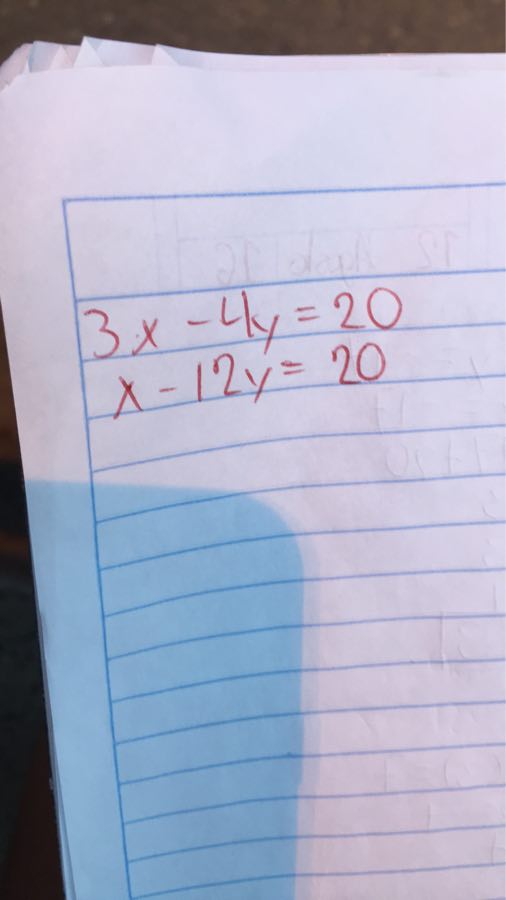 3x - 4y = 20
x - 12y = 20